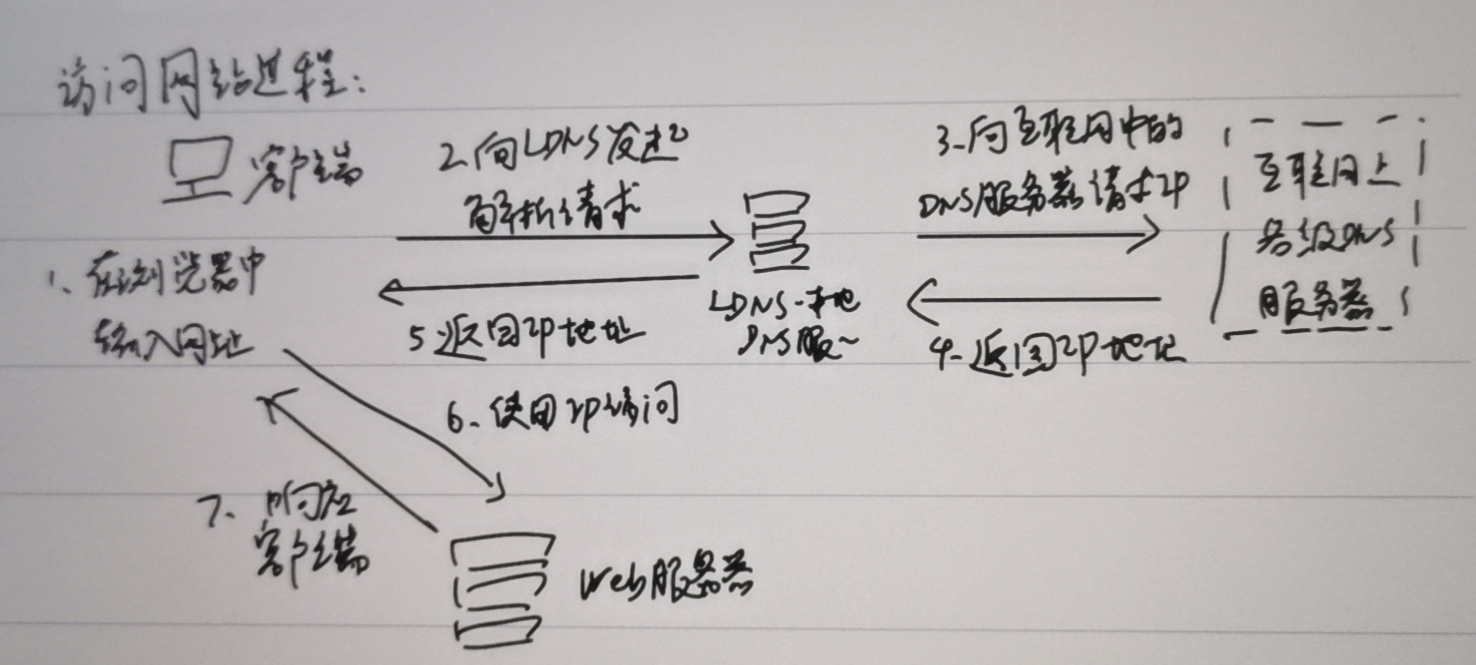 访问网站过程:
客户端
1、在浏览器中
输入网址
2.向LDNS发起
解析请求
5.返回IP地址
LDNS-本地
DNS服~
3.向互联网中的
DNS服务器请求IP
4.返回IP地址
互联网上
各级DNS
服务器
6.使用IP访问
7.响应
客户端
Web服务器